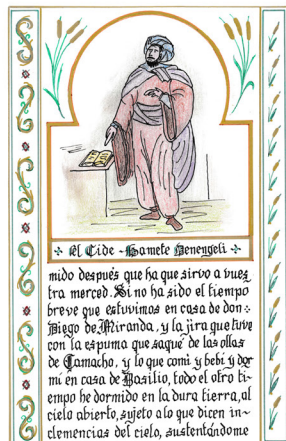 El Cide Hamete Benengeli
mido después que ha que sirvo a vues
tra merced. Si no ha sido el tiempo
breve que estuvimos en casa de don
Diego de Miranda, y la jira que tuve
con la espuma que saqué de las ollas
de Camacho, y lo que comí y bebí y dor
mí en casa de Basilio, todo el otro ti-
empo he dormido en la dura tierra, al
cielo abierto, sujeto a lo que dicen in-
clemencias del cielo, sustentándome